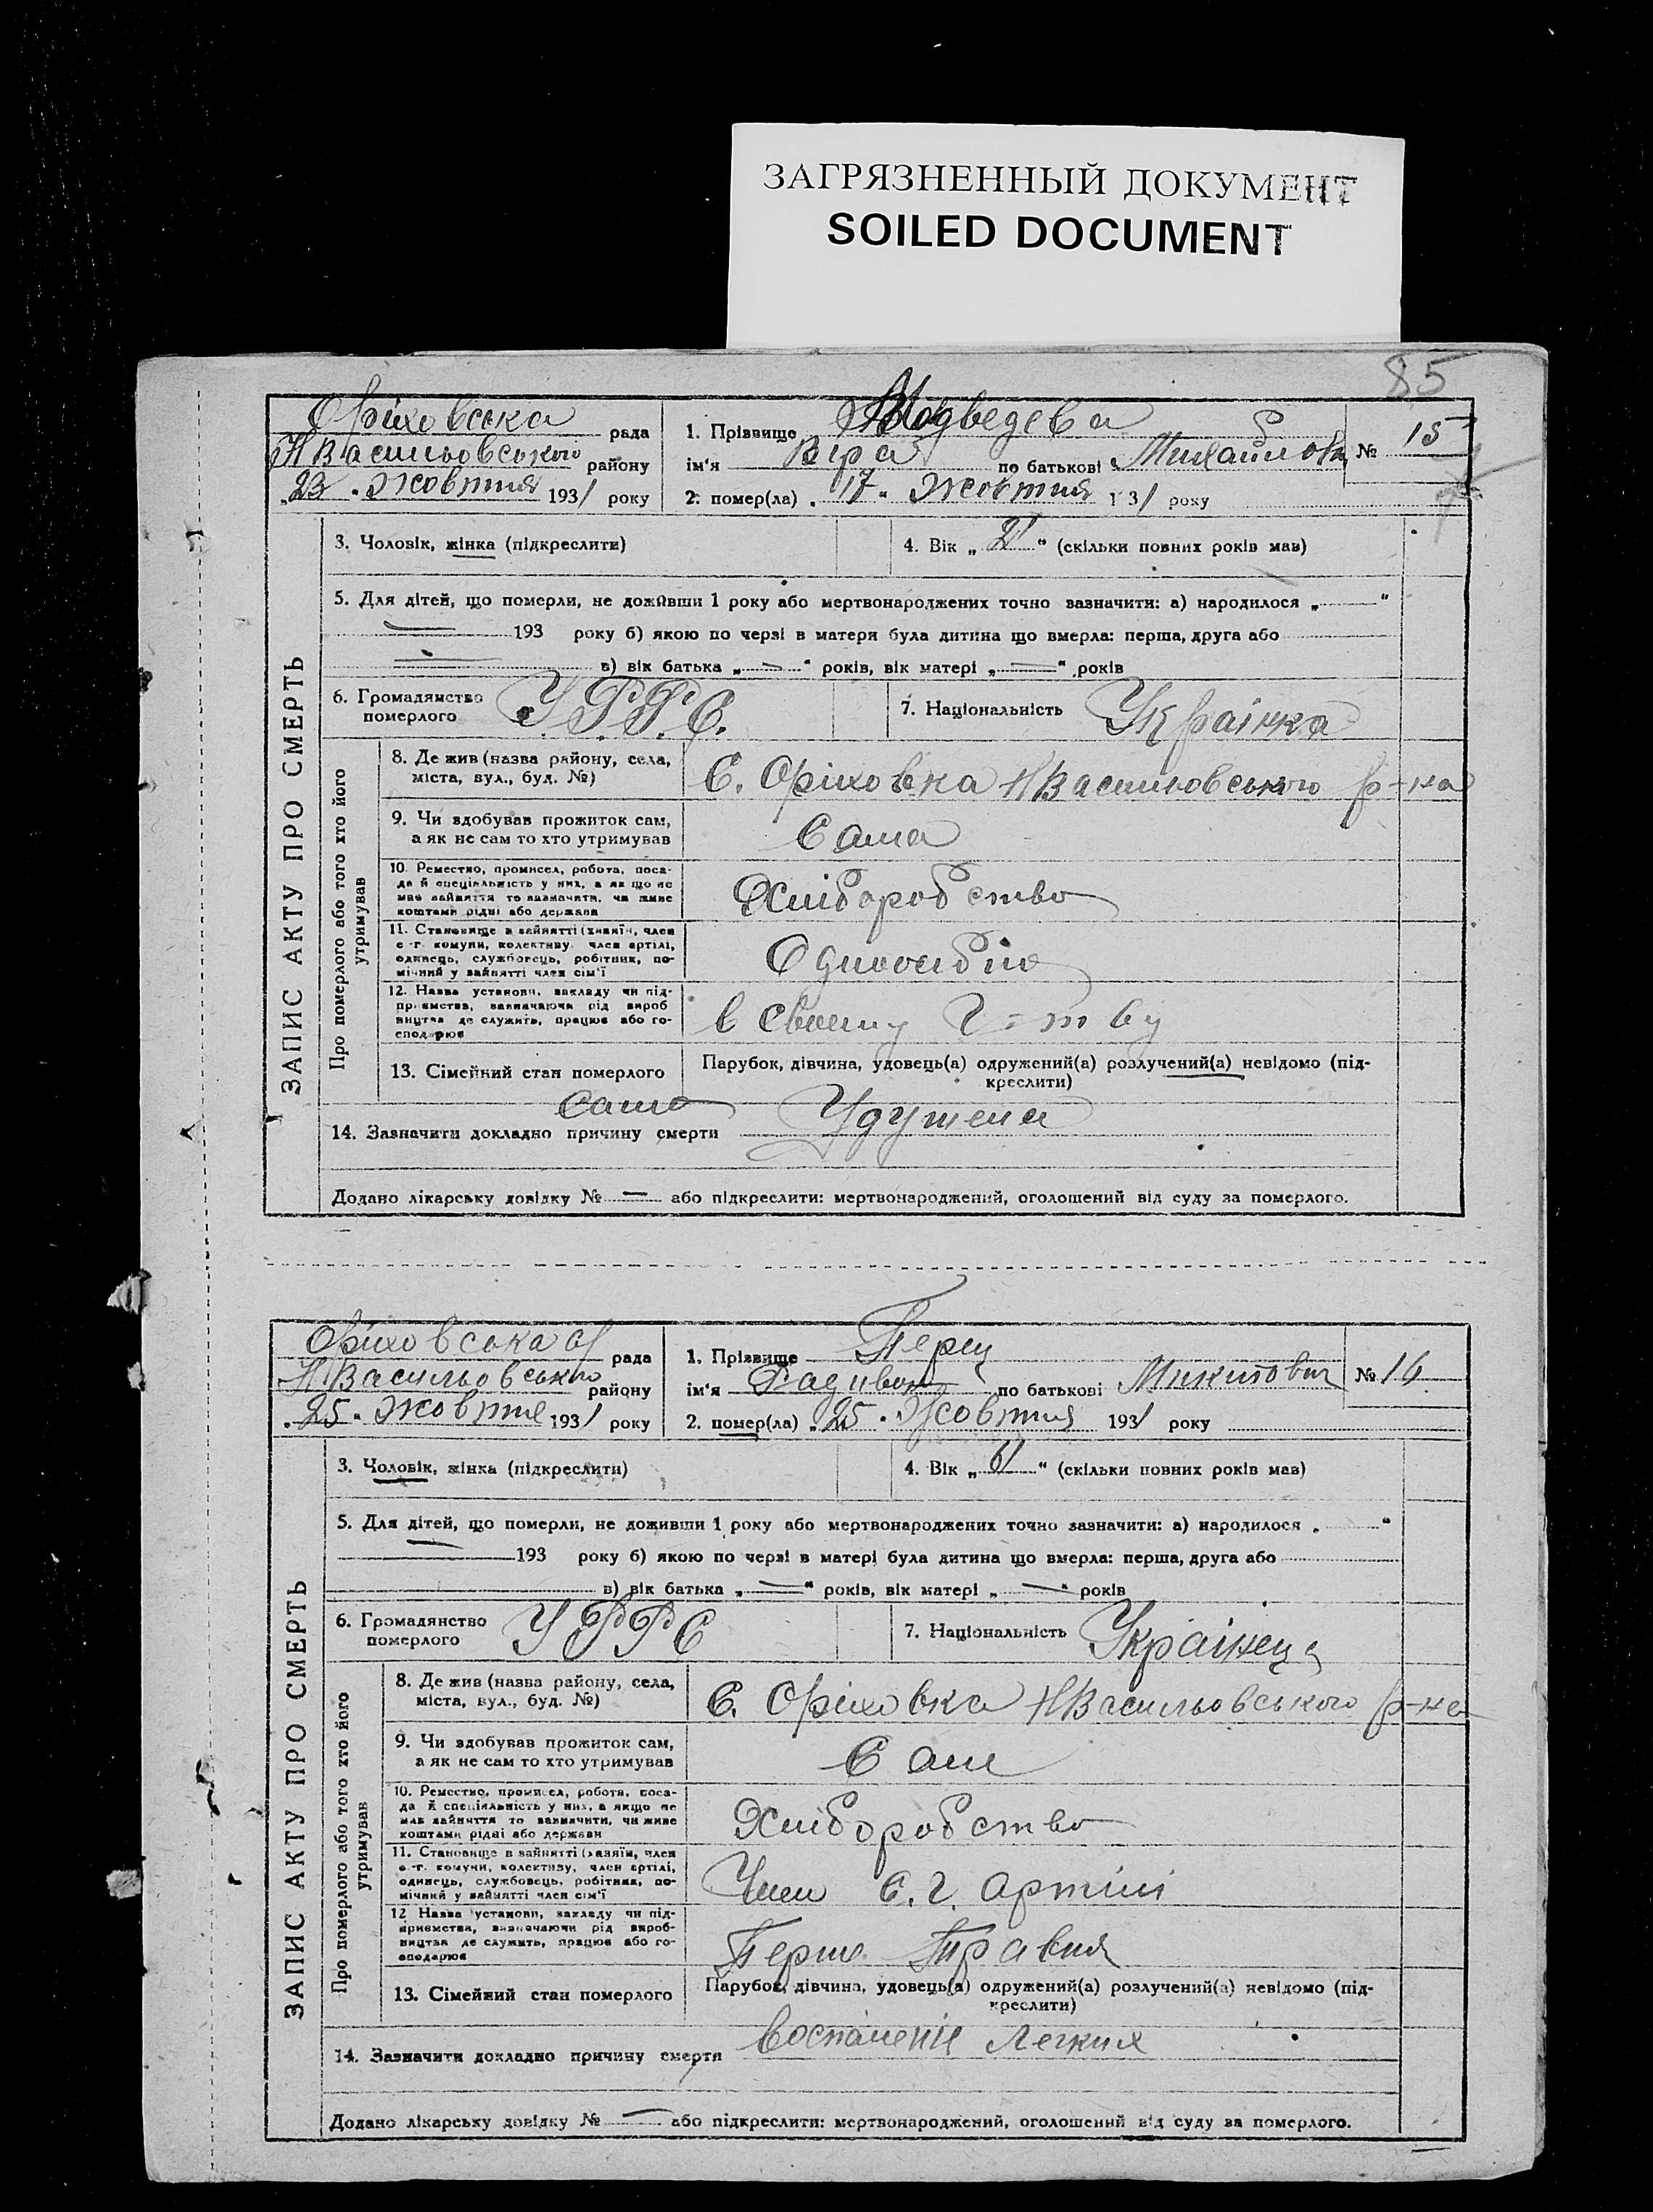 ЗАГРЯЗНЕННЫЙ ДОКУМЕНТ
SOILED DOCUMENT
85
Оріховська рада
НВасильовського району
„23„ Жовтня 1931 року
1. Прізвище Медведева
ім'я Віра по батькові Михайловн
№ 15
2. помер(ла) „17„ Жовтня 1931 року
ЗАПИС АКТУ ПРО СМЕРТЬ
3. Чоловік, жінка (підкреслити)
4. Вік „21“ (скільки повних років мав)
5. Для дітей, що померли, не доживши 1 року або мертвонароджених точно зазначити: а) народилося „—“
— 193 року б) якою по черзі в матери була дитина що вмерла: перша, друга або
— в) вік батька „—“ років, вік матері „—“ років
6. Громадянство померлого У.Р.Р.С.
7. Національність Українка
Про померлого або того хто його утримував
8. Де жив (назва району, села,
міста, вул., буд. №)
С. Оріховка НВасильовського р-на
9. Чи здобував прожиток сам,
а як не сам то хто утримував
Сама
10. Ремество, промисел, робота, поса-
да й специяльність у них, а як що не
мав зайняття то зазначити, чи живе
коштами рідні або держави
Хліборобство
11. Становище в зайнятті (хазяїн, член
с.-г. комуни, колективу, член артілі,
одинець, службовець, робітник, по-
мічний у зайнятті член сім'ї
Одноосібно
12. Назва установи, закладу чи під-
приємства, зазначаючи рід вироб
ництва де служить, працює або го-
сподарює
в своему г-тву
13. Сімейний стан померлого
Парубок, дівчина, удовець(а) одружений(а) розлучений(а) невідомо (під-
креслити)
14. Зазначити докладно причину смерти Сама Удушена
Додано лікарську довідку № — або підкреслити: мертвонароджений, оголошений від суду за померлого.
Оріховська рада
НВасильовського району
„25„ Жовтня 1931 року
1. Прізвище Перец
ім'я Радивон по батькові Микитович
№ 16
2. помер(ла) „25„ Жовтня 1931 року
ЗАПИС АКТУ ПРО СМЕРТЬ
3. Чоловік, жінка (підкреслити)
4. Вік „61“ (скільки повних років мав)
5. Для дітей, що померли, не доживши 1 року або мертвонароджених точно зазначити: а) народилося „ “
— 193 року б) якою по черзі в матері була дитина що вмерла: перша, друга або
в) вік батька „—“ років, вік матері „—“ років
6. Громадянство померлого УРРС
7. Національність Українець
Про померлого або того хто його утримував
8. Де жив (назва району, села,
міста, вул., буд. №)
С. Оріховка НВасильовського р-на
9. Чи здобував прожиток сам,
а як не сам то хто утримував
Сам
10. Ремество, промисел, робота, поса-
да й специяльність у них, а якщо не
мав зайняття то зазначити, чи живе
коштами рідні або держави
Хліборобство
11. Становище в зайнятті (хазяїн, член
с.-г. комуни, колективу, член артілі,
одинець, службовець, робітник, по-
мічний у зайнятті член сім'ї
Член С.г. артілі
12 Назва установи, закладу чи під-
приємства, зазначаючи рід вироб-
ництва де служить, працює або го-
сподарює
Перше Травня
13. Сімейний стан померлого
Парубок, дівчина, удовець(а) одружений(а) розлучений(а) невідомо (під-
креслити)
14. Зазначити докладно причину смерти воспаленіє легких
Додано лікарську довідку № — або підкреслити: мертвонароджений, оголошений від суду за померлого.